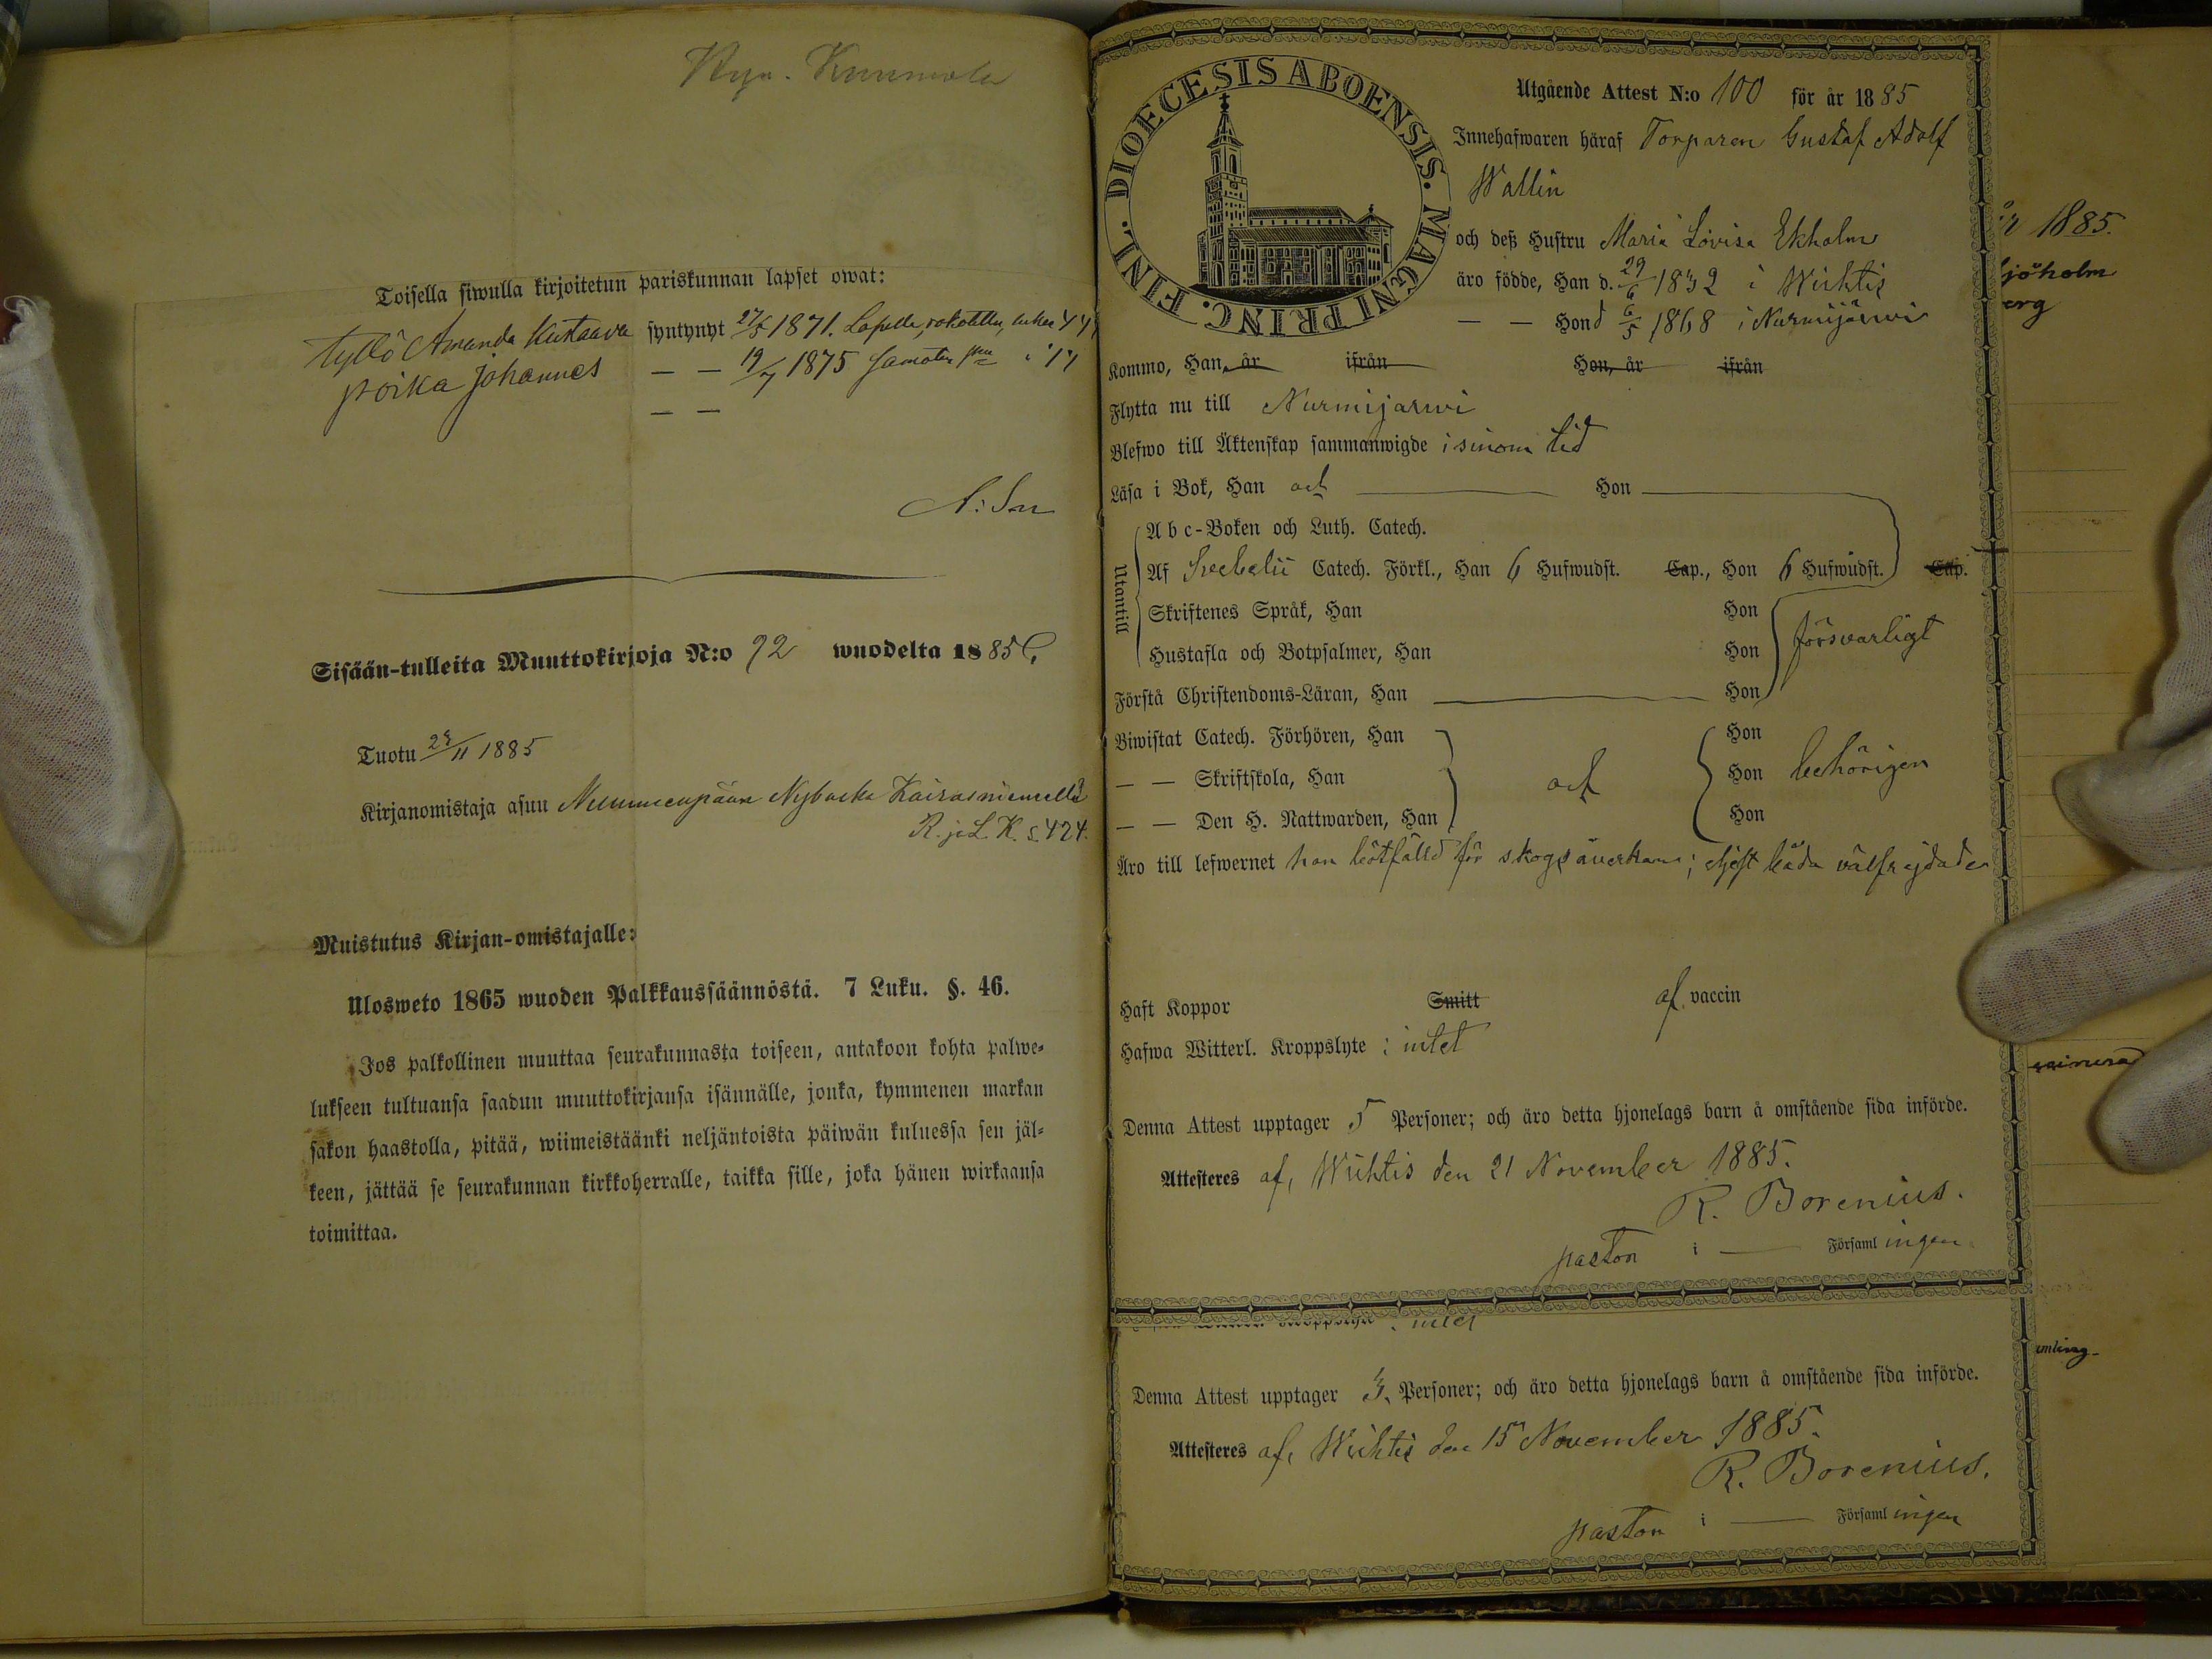 Toisella siwulla kirjoitetun pariskunnan lapset owat:
tyttö Amanda Kustaava syntynyt 27/5 1871.
poika Johannes — — 19/7 1875
— —
Sisään-tulleita Muuttokirjoja N:o 92 wuodelta 1885
Tuotu 1885
Kirjanomistaja asuu Nummenpään Nybacka
R. ja L. K. s. 424.
Muistutus Kirjan-omistajalle:
Ulosweto 1865 wuoden Palkkaussäännöstä. 7 Luku. §. 46.
Jos palkollinen muuttaa seurakunnasta toiseen, antakoon kohta palwe-
lukseen tultuansa saadun muuttokirjansa isännälle, jonka, kymmenen markan
sakon haastolla, pitää, wiimeistäänki neljäntoista päiwän kuluessa sen jäl-
keen, jättää se seurakunnan kirkkoherralle, taikka sille, joka hänen wirkaansa
toimittaa.
DIOECESIS ABOENSIS. MAGNI PRINC. FINL.
Utgående Attest N:o 100 för år 1885
Innehafwaren häraf Torparen Gustaf Adolf
Wallin
och deß Hustru Maria Lovisa Ekholm
äro födde, Han d. 29/6 1832 i Wichtis
— — Hon d 6/5 1868 i Nurmijärwi
Kommo, Han, år ifrån Hon, år ifrån
Flytta nu till Nurmijärwi
Blefwo till Äktenskap sammanwigde i sinom tid
Läsa i Bok, Han och Hon
Utantill
Abc-Boken och Luth. Catech.
Af Svebelii Catech. Förkl., Han 6 Hufwudst. Cap., Hon 6 Hufwudst. Cap.
Skriftenes Språk, Han Hon
försvarligt
Hustafla och Botpsalmer, Han Hon
Förstå Christendoms-Läran, Han Hon
Biwistat Catech. Förhören, Han Hon
— — Skriftskola, Han och Hon behörigen
— — Den H. Nattwarden, Han Hon
Äro till lefwernet han bötfälld för skogsåverkan; eljest båda välfrejdade
Haft Koppor Smitt af vaccin
Hafwa Witterl. Kroppslyte : intet
Denna Attest upptager 5 Personer; och äro detta hjonelags barn å omstående sida införde.
Attesteres af, Wichtis den 21 November 1885.
R. Borenius.
pastor i — Församlingen
Denna Attest upptager Personer; och äro detta hjonelags barn å omstående sida införde.
Attesteres af, Wichtis den 15 November 1885.
R. Borenius.
pastor i — Församlingen
1885.
jöholm
erg